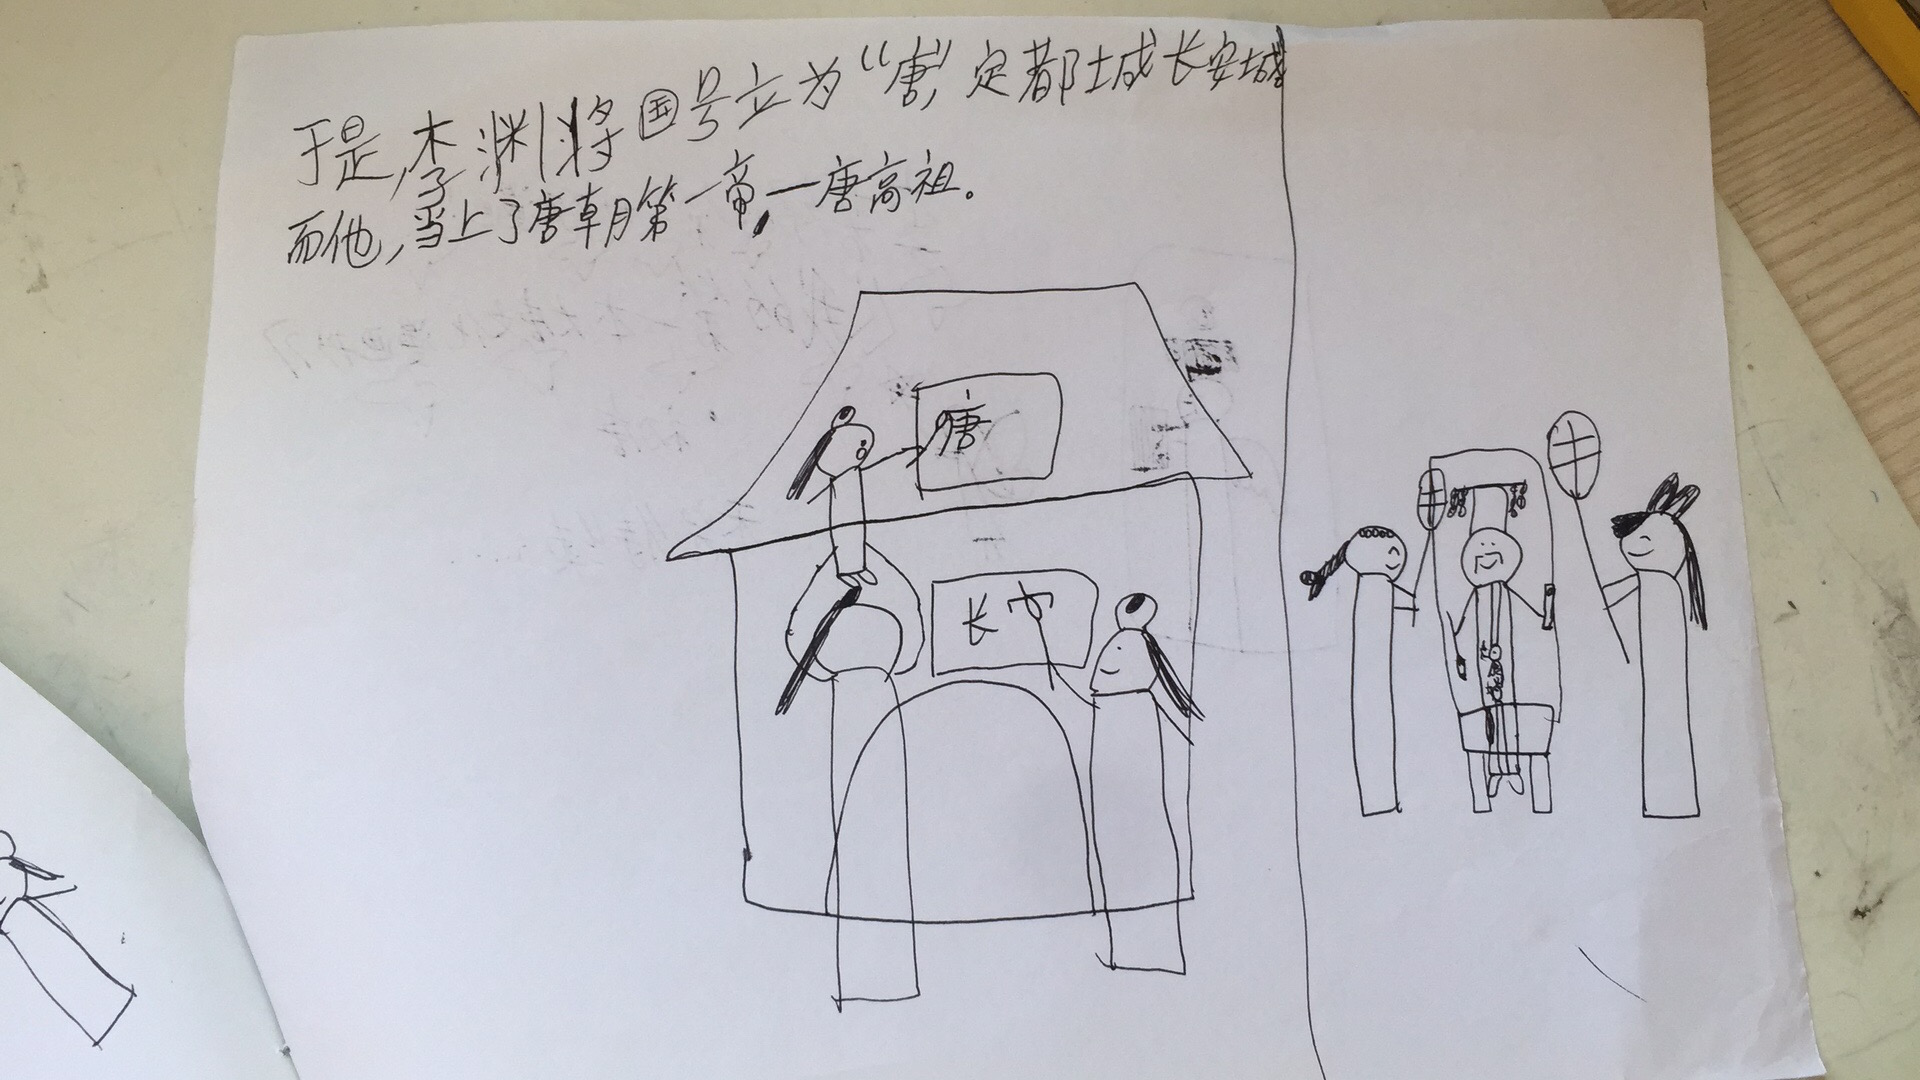 于是,李渊将国号立为“唐”,定都城长安城
而他,当上了唐朝第一帝,一唐高祖。
唐
长安